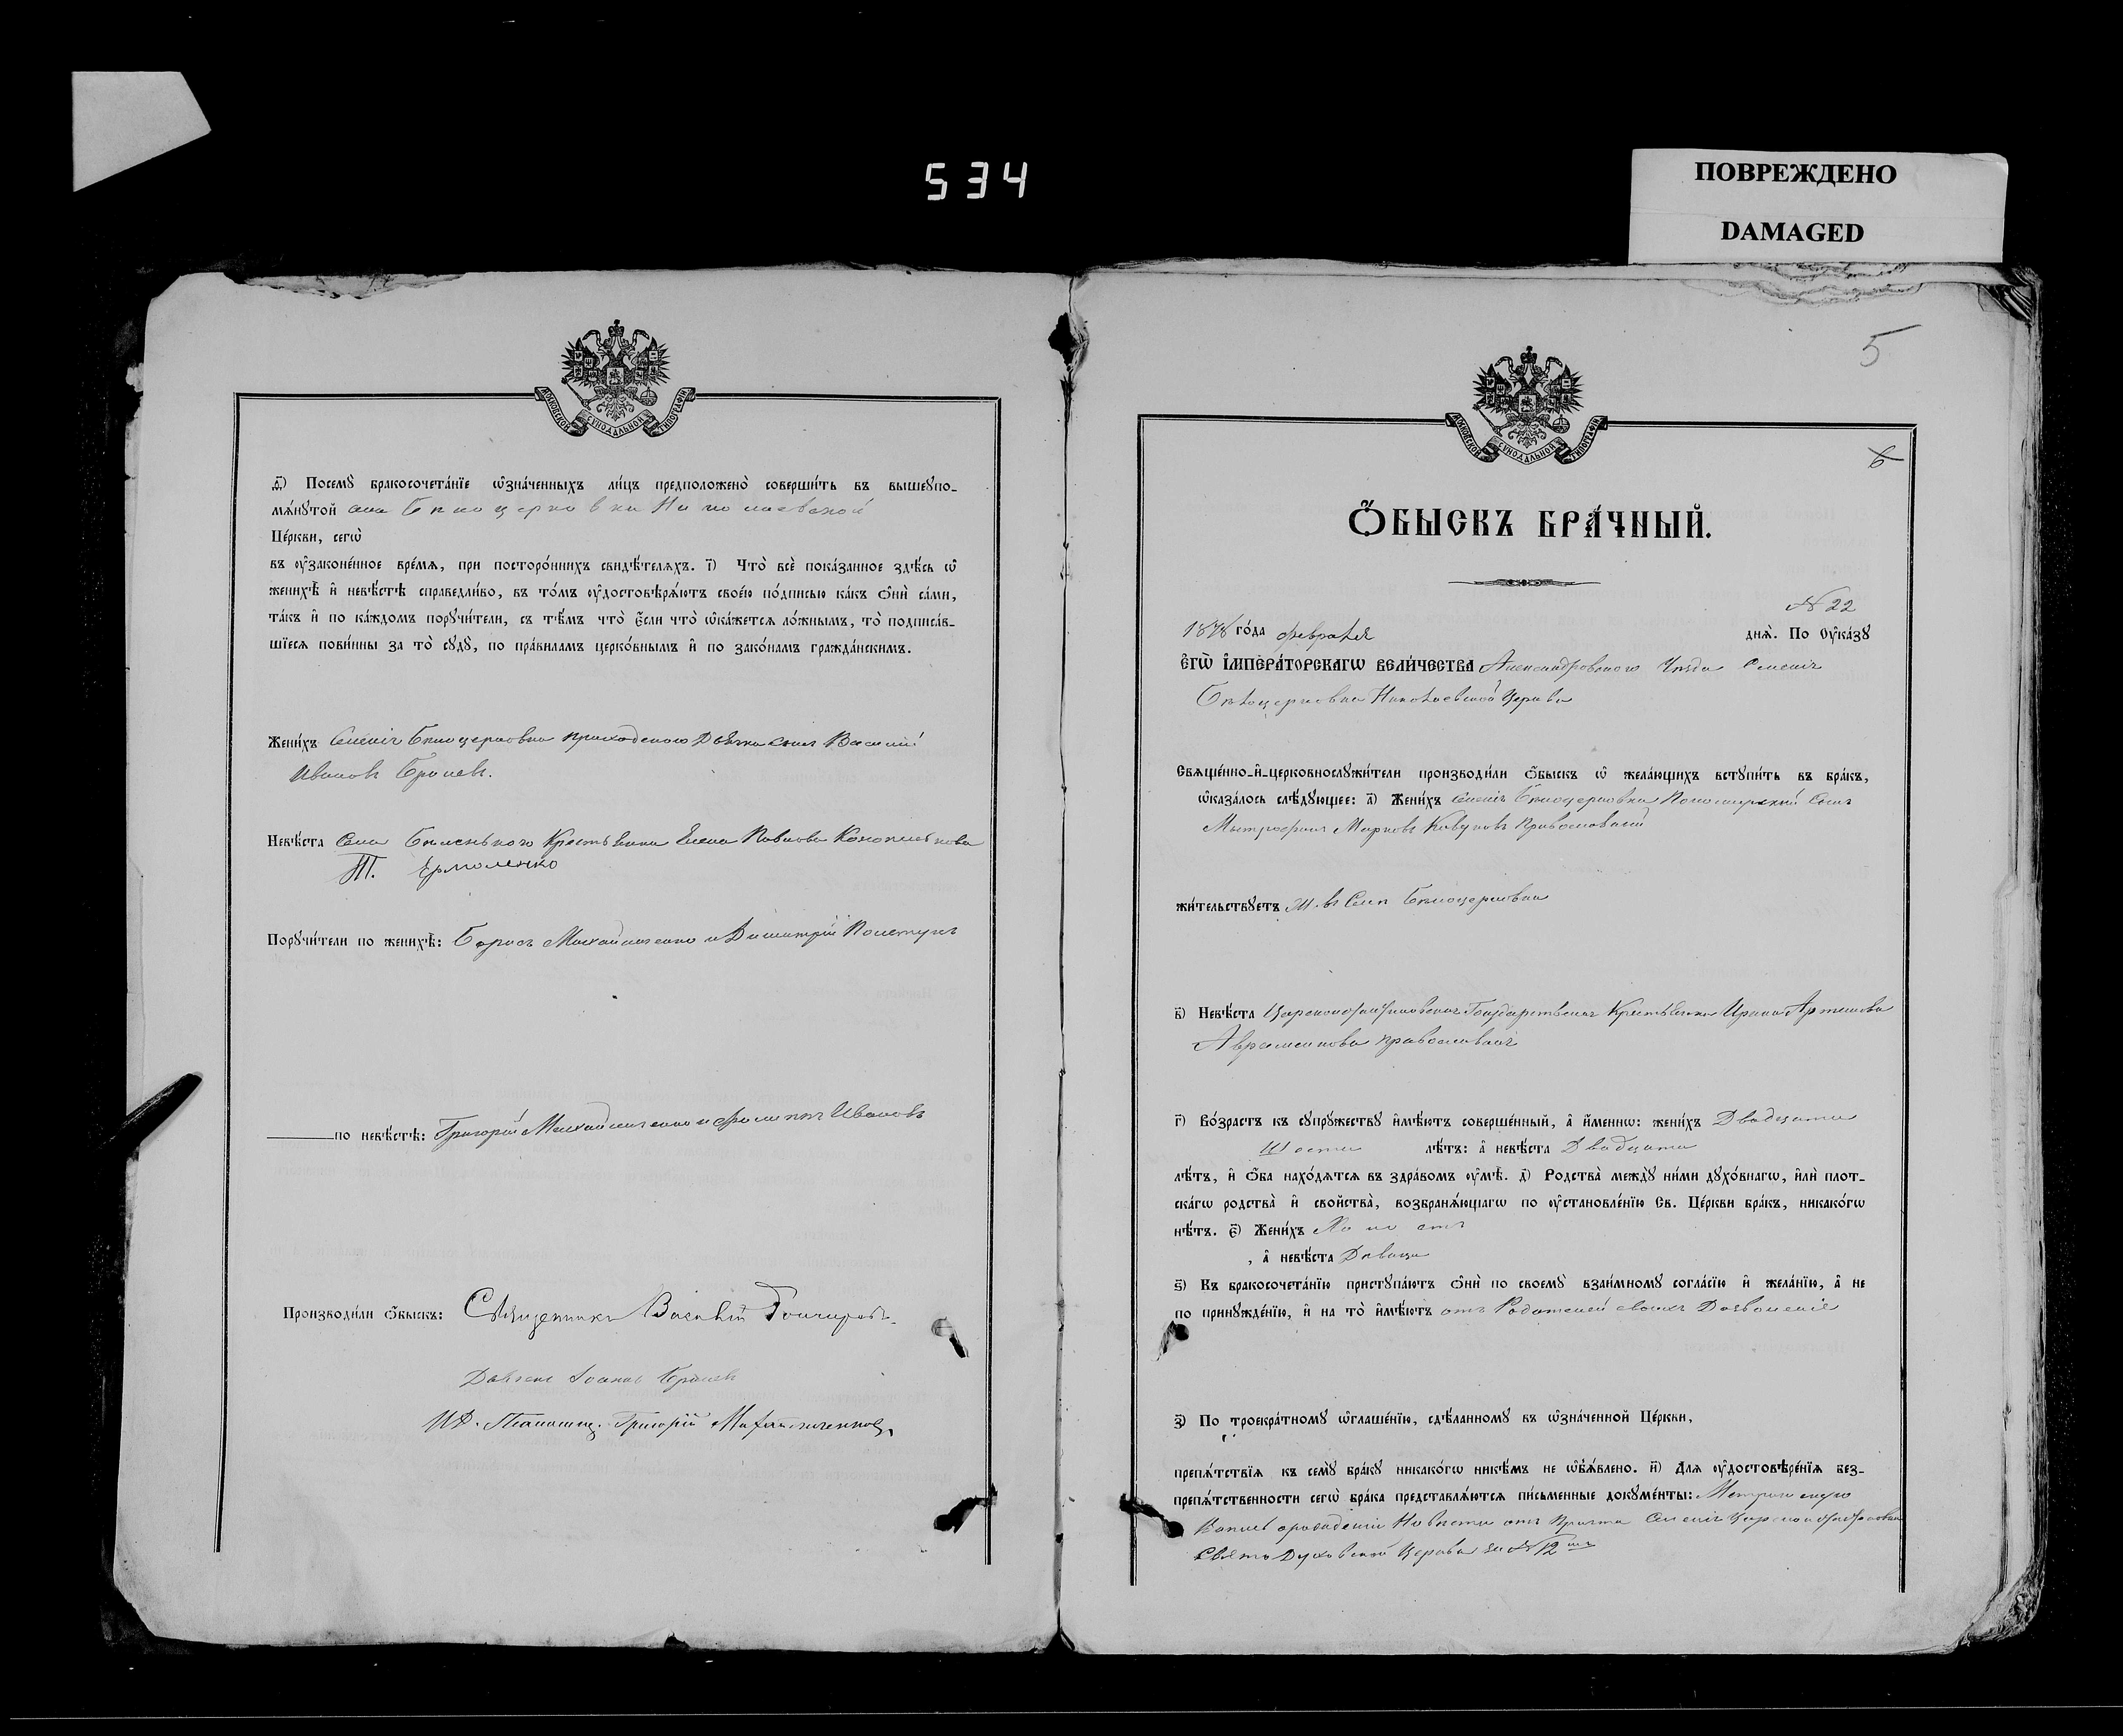 534
ПОВРЕЖДЕНО
DAMAGED
МОСКОВСКОЙ СѴНОДАЛЬНОЙ ТИПОГРАФІИ
ѳ҃) Посемꙋ̀ бракосочета́нїе ѡ҆зна́ченныхъ ли́цъ предположено̀ соверши́ть въ вышеꙋпо-
мѧ́нꙋтой села Бѣлоцерковки Николаевской
Це́ркви, сегѡ̀
въ ᲂу҆зако́ненное вре́мѧ, при посторо́ннихъ свидѣ́телѧхъ. і҃) Что̀ всѐ пока́занное здѣ́сь ѡ҆
женихѣ̀ и҆ невѣ́стѣ справедли́во, въ то́мъ ᲂу҆достовѣрѧ́ютъ свое́ю по́дписью ка́къ ѻ҆нѝ са́ми,
та́къ и҆ по ка́ждомъ порꙋчи́тели, съ тѣ́мъ что̀ є҆́сли что̀ ѡ҆ка́жетсѧ ло́жнымъ, то̀ подписа́в-
шїесѧ пови́нны за то̀ сꙋдꙋ̀, по пра́виламъ церко́внымъ и҆ по зако́намъ гражда́нскимъ.
Жени́хъ Селенія Бѣлоцерковки приходского Дьячка сынъ Василій
Ивановъ Брошев.
Невѣ́ста Села Крестьянка Елена Павлова
П. Ермоленко
Порꙋчи́тели по женихѣ̀: Борисъ Михайличенко и Димитрій Полетунъ
по невѣ́стѣ: Григорій Михайличенко и Филиппъ Ивановъ
Производи́ли ѻ҆́быскъ: Священникъ Василій Гончаровъ
Дьячекъ Іоаннъ
И.Д. Псаломщ. Григорій Михайличенковъ
5
6
МОСКОВСКОЙ СѴНОДАЛЬНОЙ ТИПОГРАФІИ
Ѻ҆́БЫСКЪ БРА́ЧНЫЙ.
№ 22
1878 го́да февраля днѧ̀. По Ꙋ҆ка́зꙋ
Є҆ГѠ̀ И҆МПЕРА́ТОРСКАГѠ ВЕЛИ́ЧЕСТВА Александровского Уѣзда Селенія
Бѣлоцерковки Николаевской Церкви
Свѧще́нно-и҆-церковнослꙋжи́тели производи́ли ѻ҆́быскъ ѡ҆ жела́ющихъ встꙋпи́ть въ бра́къ,
ѡ҆каза́лось слѣ́дꙋющее: а҃) Жени́хъ Селенія Бѣлоцерковки Пономарскій Сынъ
Митрофанъ Марковъ Кавуновъ Православный
жи́тельствꙋетъ въ Селѣ Бѣлоцерковки
в҃) Невѣ́ста Царсконстантиновская Государственная Крестьянка Ирина Артемова
Авраменкова православная
г҃) Во́зрастъ къ сꙋпрꙋ́жествꙋ и҆мѣ́ютъ соверше́нный, а҆ и҆́меннѡ: жени́хъ Двадцати
Шести лѣ́тъ: а҆ невѣ́ста Двадцати
лѣ́тъ, и҆ ѻ҆́ба нахо́дѧтсѧ въ здра́вомъ ᲂу҆мѣ̀. д҃) Родства̀ междꙋ̀ ни́ми дꙋхо́внагѡ, и҆лѝ плот-
ска́гѡ родства̀ и҆ свойства̀, возбранѧ́ющагѡ по ᲂу҆становле́нїю Св. Це́ркви бра́къ, никако́гѡ
нѣ́тъ. є҃) Жени́хъ Холостъ
, а҆ невѣ́ста Дѣвица
ѕ҃) Къ бракосочета́нїю пристꙋпа́ютъ ѻ҆нѝ по своемꙋ̀ взаи́мномꙋ согла́сїю и҆ жела́нїю, а҆ не
по принꙋжде́нїю, и҆ на то̀ и҆мѣ́ютъ отъ Родителей своихъ Дозволеніе
з҃) По троекра́тномꙋ ѡ҆глаше́нїю, сдѣ́ланномꙋ въ ѡ҆зна́ченной Це́ркви,
препѧ́тствїѧ къ семꙋ̀ бра́кꙋ никако́гѡ никѣ́мъ не ѡ҆б̾ѧ́влено. и҃) Длѧ ᲂу҆достовѣре́нїѧ без-
препѧ́тственности сегѡ̀ бра́ка представлѧ́ютсѧ пи́сьменные докꙋме́нты:
о рожденіи Невѣсты отъ Причта Селенія Царсконстантиновки
Свято Духовской Церкви за № 12